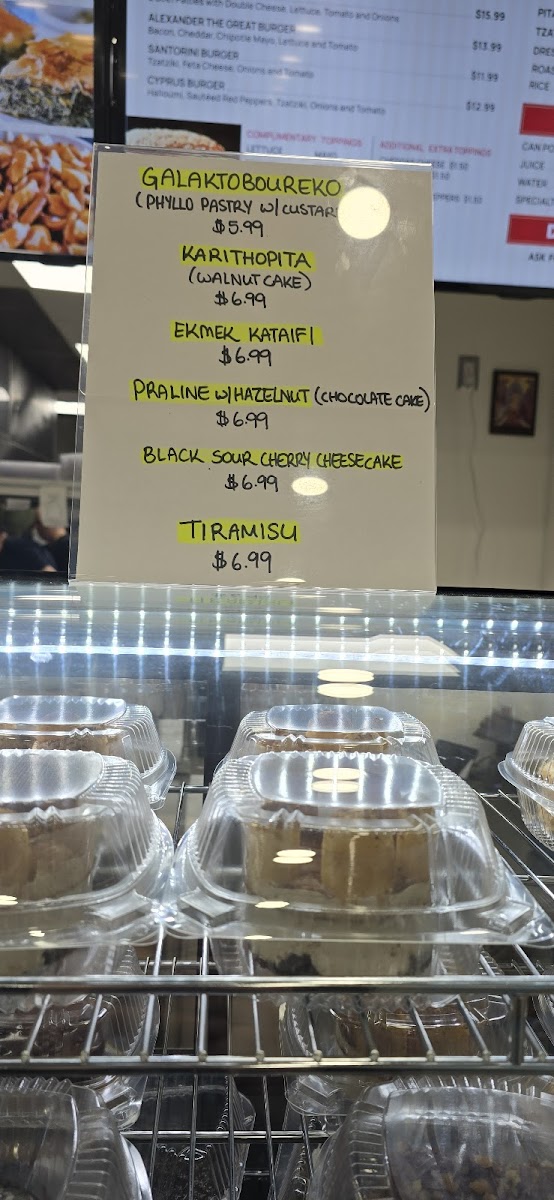 Double Cheese, Lettuce, Tomato and Onions
$15.99
ALEXANDER THE GREAT BURGER
Bacon, Cheddar, Chipotle Mayo, Lettuce and Tomato
$13.99
SANTORINI BURGER
Tzatziki, Feta Cheese, Onions and Tomato
$11.99
CYPRUS BURGER
Halloumi, Sautéed Red Peppers, Tzatziki, Onions and Tomato
$12.99
COMPLIMENTARY TOPPINGS
LETTUCE
MAYO
ADDITIONAL EXTRA TOPPINGS
$1.50
PEPPERS $1.50
PIT
TZA
DRE
ROAS
RICE
CAN PO
JUICE
WATER
SPECIALT
ASK F
GALAKTOBOUREKO
(PHYLLO PASTRY W/CUSTAR
$5.99
KARITHOPITA
(WALNUT CAKE)
$6.99
EKMEK KATAIFI
$6.99
PRALINE W/HAZELNUT (CHOCOLATE CAKE)
$6.99
BLACK SOUR CHERRY CHEESECAKE
$6.99
TIRAMISU
$6.99